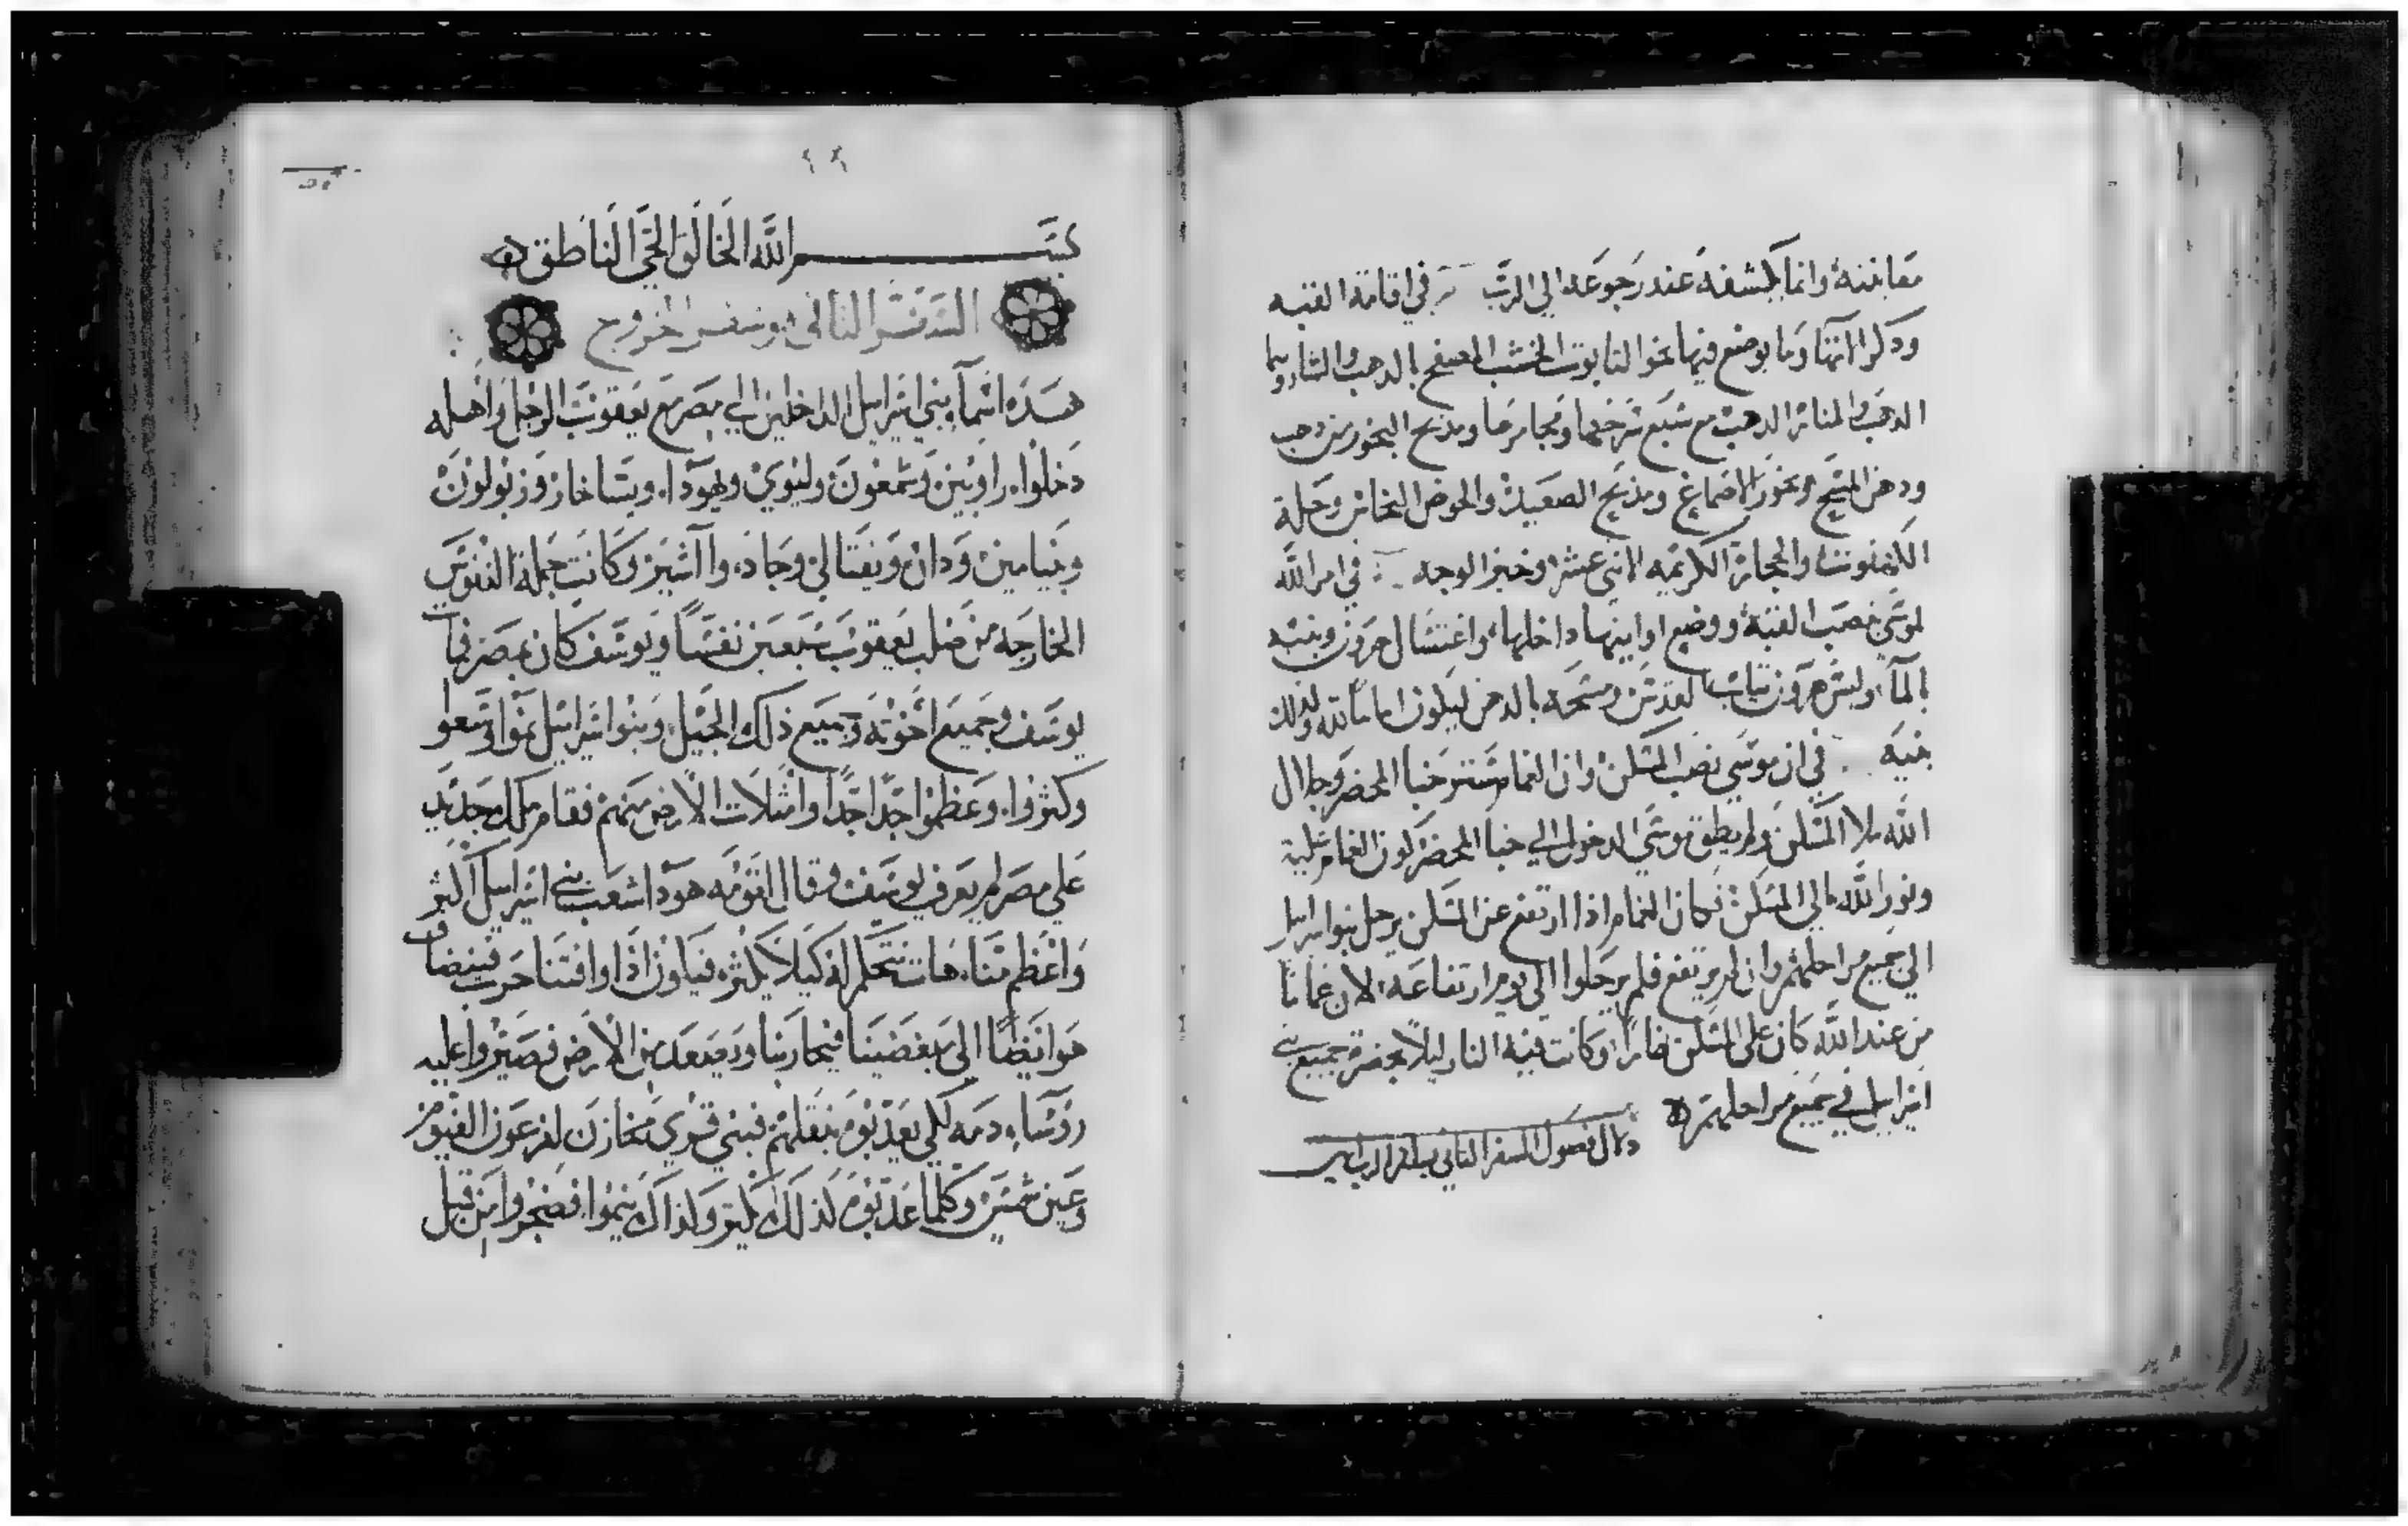 معاينته وانما يكشفه عند رجوعه الى الرب في اقامة القبه
وذكر انيتها وما يوضع فيها نحو التابوت الخشب المصفح بالدهب
الدهب والمناير الدهب مع سبع سرجها ومجامرها ومذبح البخور من دهب
ودهن المسح وبخور الاصماغ ومذبح الصعيد والحوض النحاس وحلة
الكهنوت والحجاره الكريمه الاثنى عشر وخبز الوجه في امر الله
لموسى بنصب القبه ووضع اوانيها داخلها واغتسال هرون وبنيه
بالمآ ولبس هرون تياب القدس ومسحه بالدهن ليكون اماما لله وكذلك
بنيه في ان موسى نصب المسكن وان الغمام ستر خبا المحضر وجلال
الله ملا المسكن ولم يطق موسى الدخول الى خبا المحضر لكون الغمام عليه
ونور الله مالي المسكن فكان الغمام اذا ارتفع عن المسكن يرحل بنوا اسرايل
الى جميع مراحلهم وان لم يرتفع فلم يرحلوا الى يوم ارتفاعه لان غماما
من عند الله كان على المسكن نهارا وكانت فيه النار ليلا بحضرة جميع بني
اسرايل في جميع مراحلهم
كمال فصول السفر الثاني بسلام الرب امين
٢٩
بسم الله الخالق الحي الناطق
السفر التاني وسفر الخروج
هذه اسمآ بني اسرايل الداخلين الى مصر مع يعقوب الرجل واهله
دخلوا راوبين وشمعون وليوي ويهودا ويساخار وزبولون
وبنيامين ودان ونفتالي وجاد واآشير وكانت جملة النفوس
الخارجه من صلب يعقوب سبعين نفسا ويوسف كان بمصر فمات
يوسف وجميع اخوته وجميع ذلك الجيل وبنوا اسرايل نموا وتسعوا
وكثروا وعظموا جدا جدا وامتلات الارض منهم فقام ملك جديد
على مصر لم يعرف يوسف وقال لقومه هودا شعب بني اسرايل اكثر
واعظم منا هات نتحكم له كيلا يكثر فيكون اذا وافتنا حرب فينضاف
هو ايضا الى مبغضينا فيحاربنا ويصعد من الارض فصيروا عليه
رؤسآ دمه لكي يعدبوه بثقلهم فبنى قرى مخازن لفرعون الفيوم
وعين شمس وكلما عدبوه لذلك يكثر ولذاك ينموا فضجروا من قبل